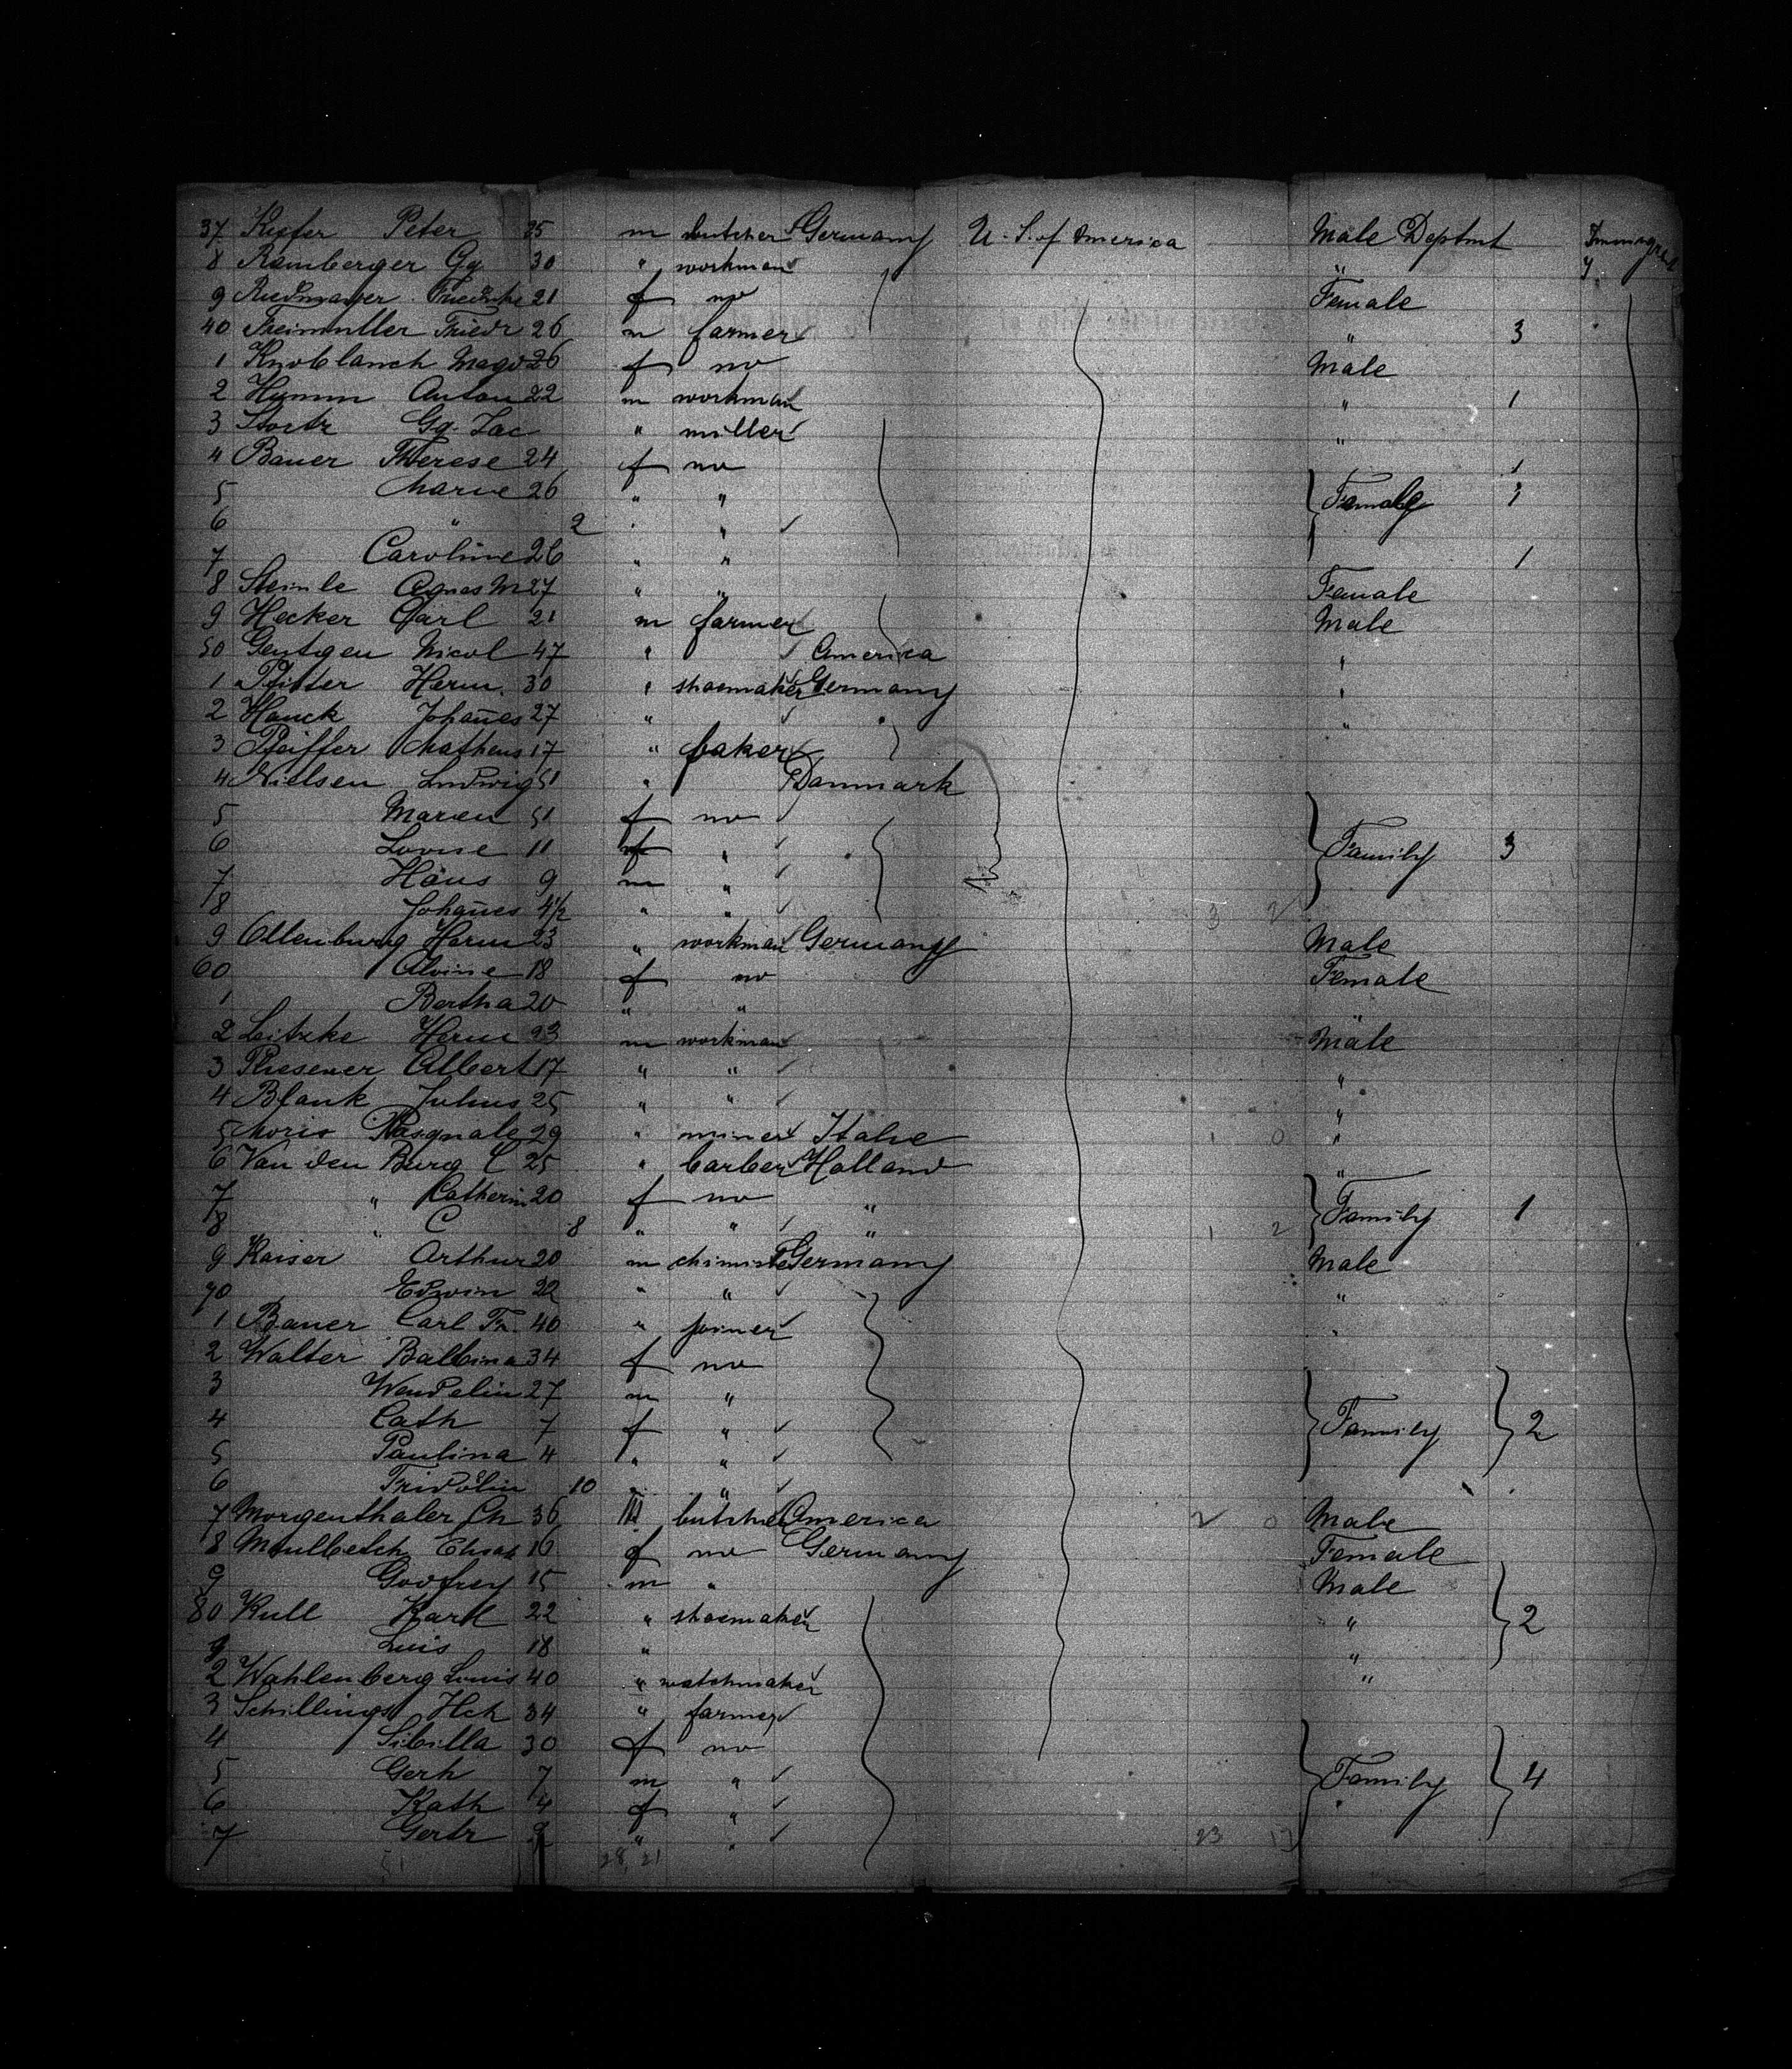 37 Kiefer Peter 25 m butcher Germany U. S. of America Male Deptmt 1
8 Ramberger Gg 30 " workman "
9 Friedrike 21 f no Female
40 Freimuller Friedr 26 m farmer " 3
1 Knoblauch Magd 26 f no Male
2 Hymm Anton 22 m workman " 1
3 Gg. Jac " miller "
4 Bauer Therese 24 f no 1
5 Marie 26 " " Female 1
6 " 2 " "
7 Caroline 26 " " 1
8 Steimle Agnes M 27 " " Female
9 Hecker Carl 21 m farmer Male
50 Gentgen Nicol 47 " America "
1 Pfitter Herm. 30 " shoemaker Germany "
2 Hauck Johañes 27 " "
3 Pfeiffer Matheus 17 " baker
4 Nielsen Ludwig 51 " Danmark
5 Maren 51 f no
6 Lovise 11 f " Family 3
7 Hans 9 m "
8 Johañes 4 1/2 " " 3 2
9 Ollenburg Herm 23 " workman Germany Male
60 Alvine 18 f no Female
1 Bertha 20 " " "
2 Leitzke Herm 23 m workman Male
3 Albert 17 " " "
4 Blank Julius 25 " " "
5 Moris Pasquale 29 " miner Italie 1 0 "
6 Van den Burg C 25 " barber Holland "
7 " Catherin 20 f no " Family 1
8 " C 8 " " " 1 2
9 Kaiser Arthur 20 m chimiste Germany Male
70 Edwin 22 " " "
1 Bauer Carl Fr. 40 " joiner "
2 Walter Balbina 34 f no
3 Wendelin 27 m "
4 Cath 7 f " Family 2
5 Paulina 4 " "
6 Fridolin 10 " "
7 Morgenthaler Ch 36 m butcher America 2 0 Male
8 Elisab 16 f no Germany Female
9 Godfrey 15 m " Male
80 Kull Karl 22 " shoemaker " 2
Luis 18 " "
2 Wahlenberg Louis 40 " watchmaker "
3 Schillings Hch 34 " farmer
4 Sibilla 30 f no
5 Gerh 7 m " Family 4
6 Kath 4 f "
7 Gertr " " 23
28, 21